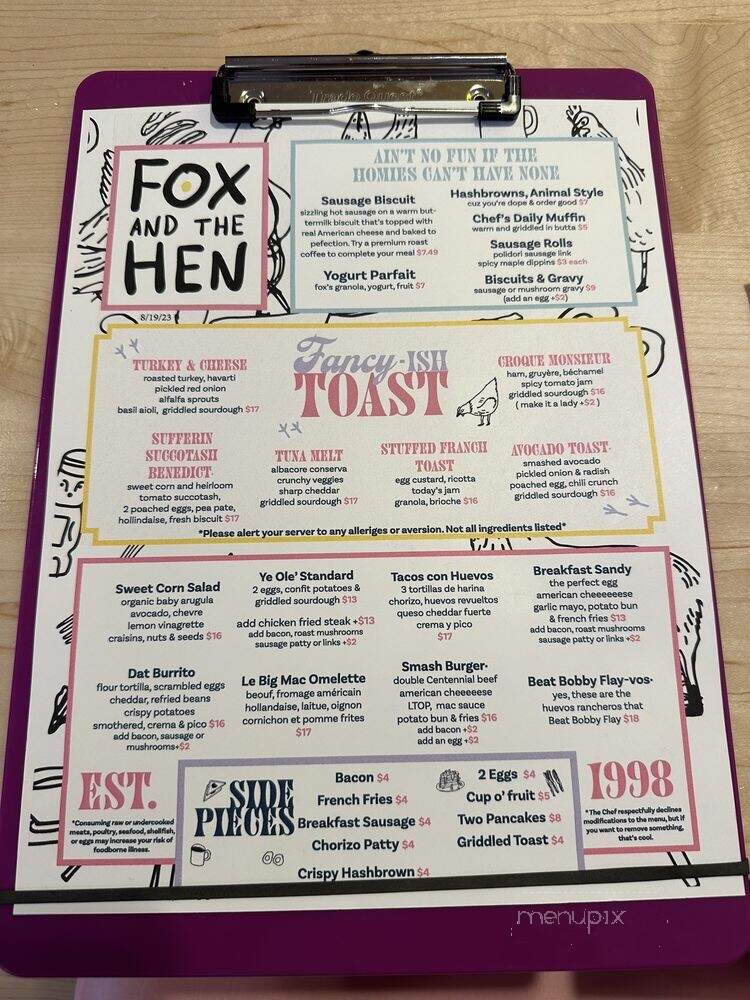 FOX
AND THE
HEN
8/19/23
AIN'T NO FUN IF THE
HOMIES CAN'T HAVE NONE
Sausage Biscuit
sizzling hot sausage on a warm but-
termilk biscuit that's topped with
real American cheese and baked to
pefection. Try a premium roast
coffee to complete your meal $7.49
Yogurt Parfait
fox's granola, yogurt, fruit $7
Hashbrowns, Animal Style
cuz you're dope & order good $7
Chef's Daily Muffin
warm and griddled in butta $5
Sausage Rolls
polidori sausage link
spicy maple dippins $3 each
Biscuits & Gravy
sausage or mushroom gravy $9
(add an egg +$2)
Fancy-ISH
TOAST
TURKEY & CHEESE
roasted turkey, havarti
pickled red onion
alfalfa sprouts
basil aioli, griddled sourdough $17
CROQUE MONSIEUR
ham, gruyère, béchamel
spicy tomato jam
griddled sourdough $16
( make it a lady +$2 )
SUFFERIN
SUCCOTASH
BENEDICT*
sweet corn and heirloom
tomato succotash,
2 poached eggs, pea pate,
hollindaise, fresh biscuit $17
TUNA MELT
albacore conserva
crunchy veggies
sharp cheddar
griddled sourdough $17
STUFFED FRANCH
TOAST
egg custard, ricotta
today's jam
granola, brioche $16
AVOCADO TOAST*
smashed avocado
pickled onion & radish
poached egg, chili crunch
griddled sourdough $16
*Please alert your server to any alleriges or aversion. Not all ingredients listed*
Sweet Corn Salad
organic baby arugula
avocado, chevre
lemon vinagrette
craisins, nuts & seeds $16
Ye Ole' Standard
2 eggs, confit potatoes &
griddled sourdough $13
add chicken fried steak +$13
add bacon, roast mushrooms
sausage patty or links +$2
Tacos con Huevos
3 tortillas de harina
chorizo, huevos revueltos
queso cheddar fuerte
crema y pico
$17
Breakfast Sandy
the perfect egg
american cheeeeeese
garlic mayo, potato bun
& french fries $13
add bacon, roast mushrooms
sausage patty or links +$2
Dat Burrito
flour tortilla, scrambled eggs
cheddar, refried beans
crispy potatoes
smothered, crema & pico $16
add bacon, sausage or
mushrooms+$2
Le Big Mac Omelette
beouf, fromage américain
hollandaise, laitue, oignon
cornichon et pomme frites
$17
Smash Burger*
double Centennial beef
american cheeeeese
LTOP, mac sauce
potato bun & fries $16
add bacon +$2
add an egg +$2
Beat Bobby Flay-vos*
yes, these are the
huevos rancheros that
Beat Bobby Flay $18
EST.
1998
*Consuming raw or undercooked
meats, poultry, seafood, shellfish,
or eggs may increase your risk of
foodborne illness.
SIDE
PIECES
Bacon $4
French Fries $4
Breakfast Sausage $4
Chorizo Patty $4
Crispy Hashbrown $4
2 Eggs $4
Cup o' fruit $5
Two Pancakes $8
Griddled Toast $4
*The Chef respectfully declines
modifications to the menu, but if
you want to remove something,
that's cool.
menupix